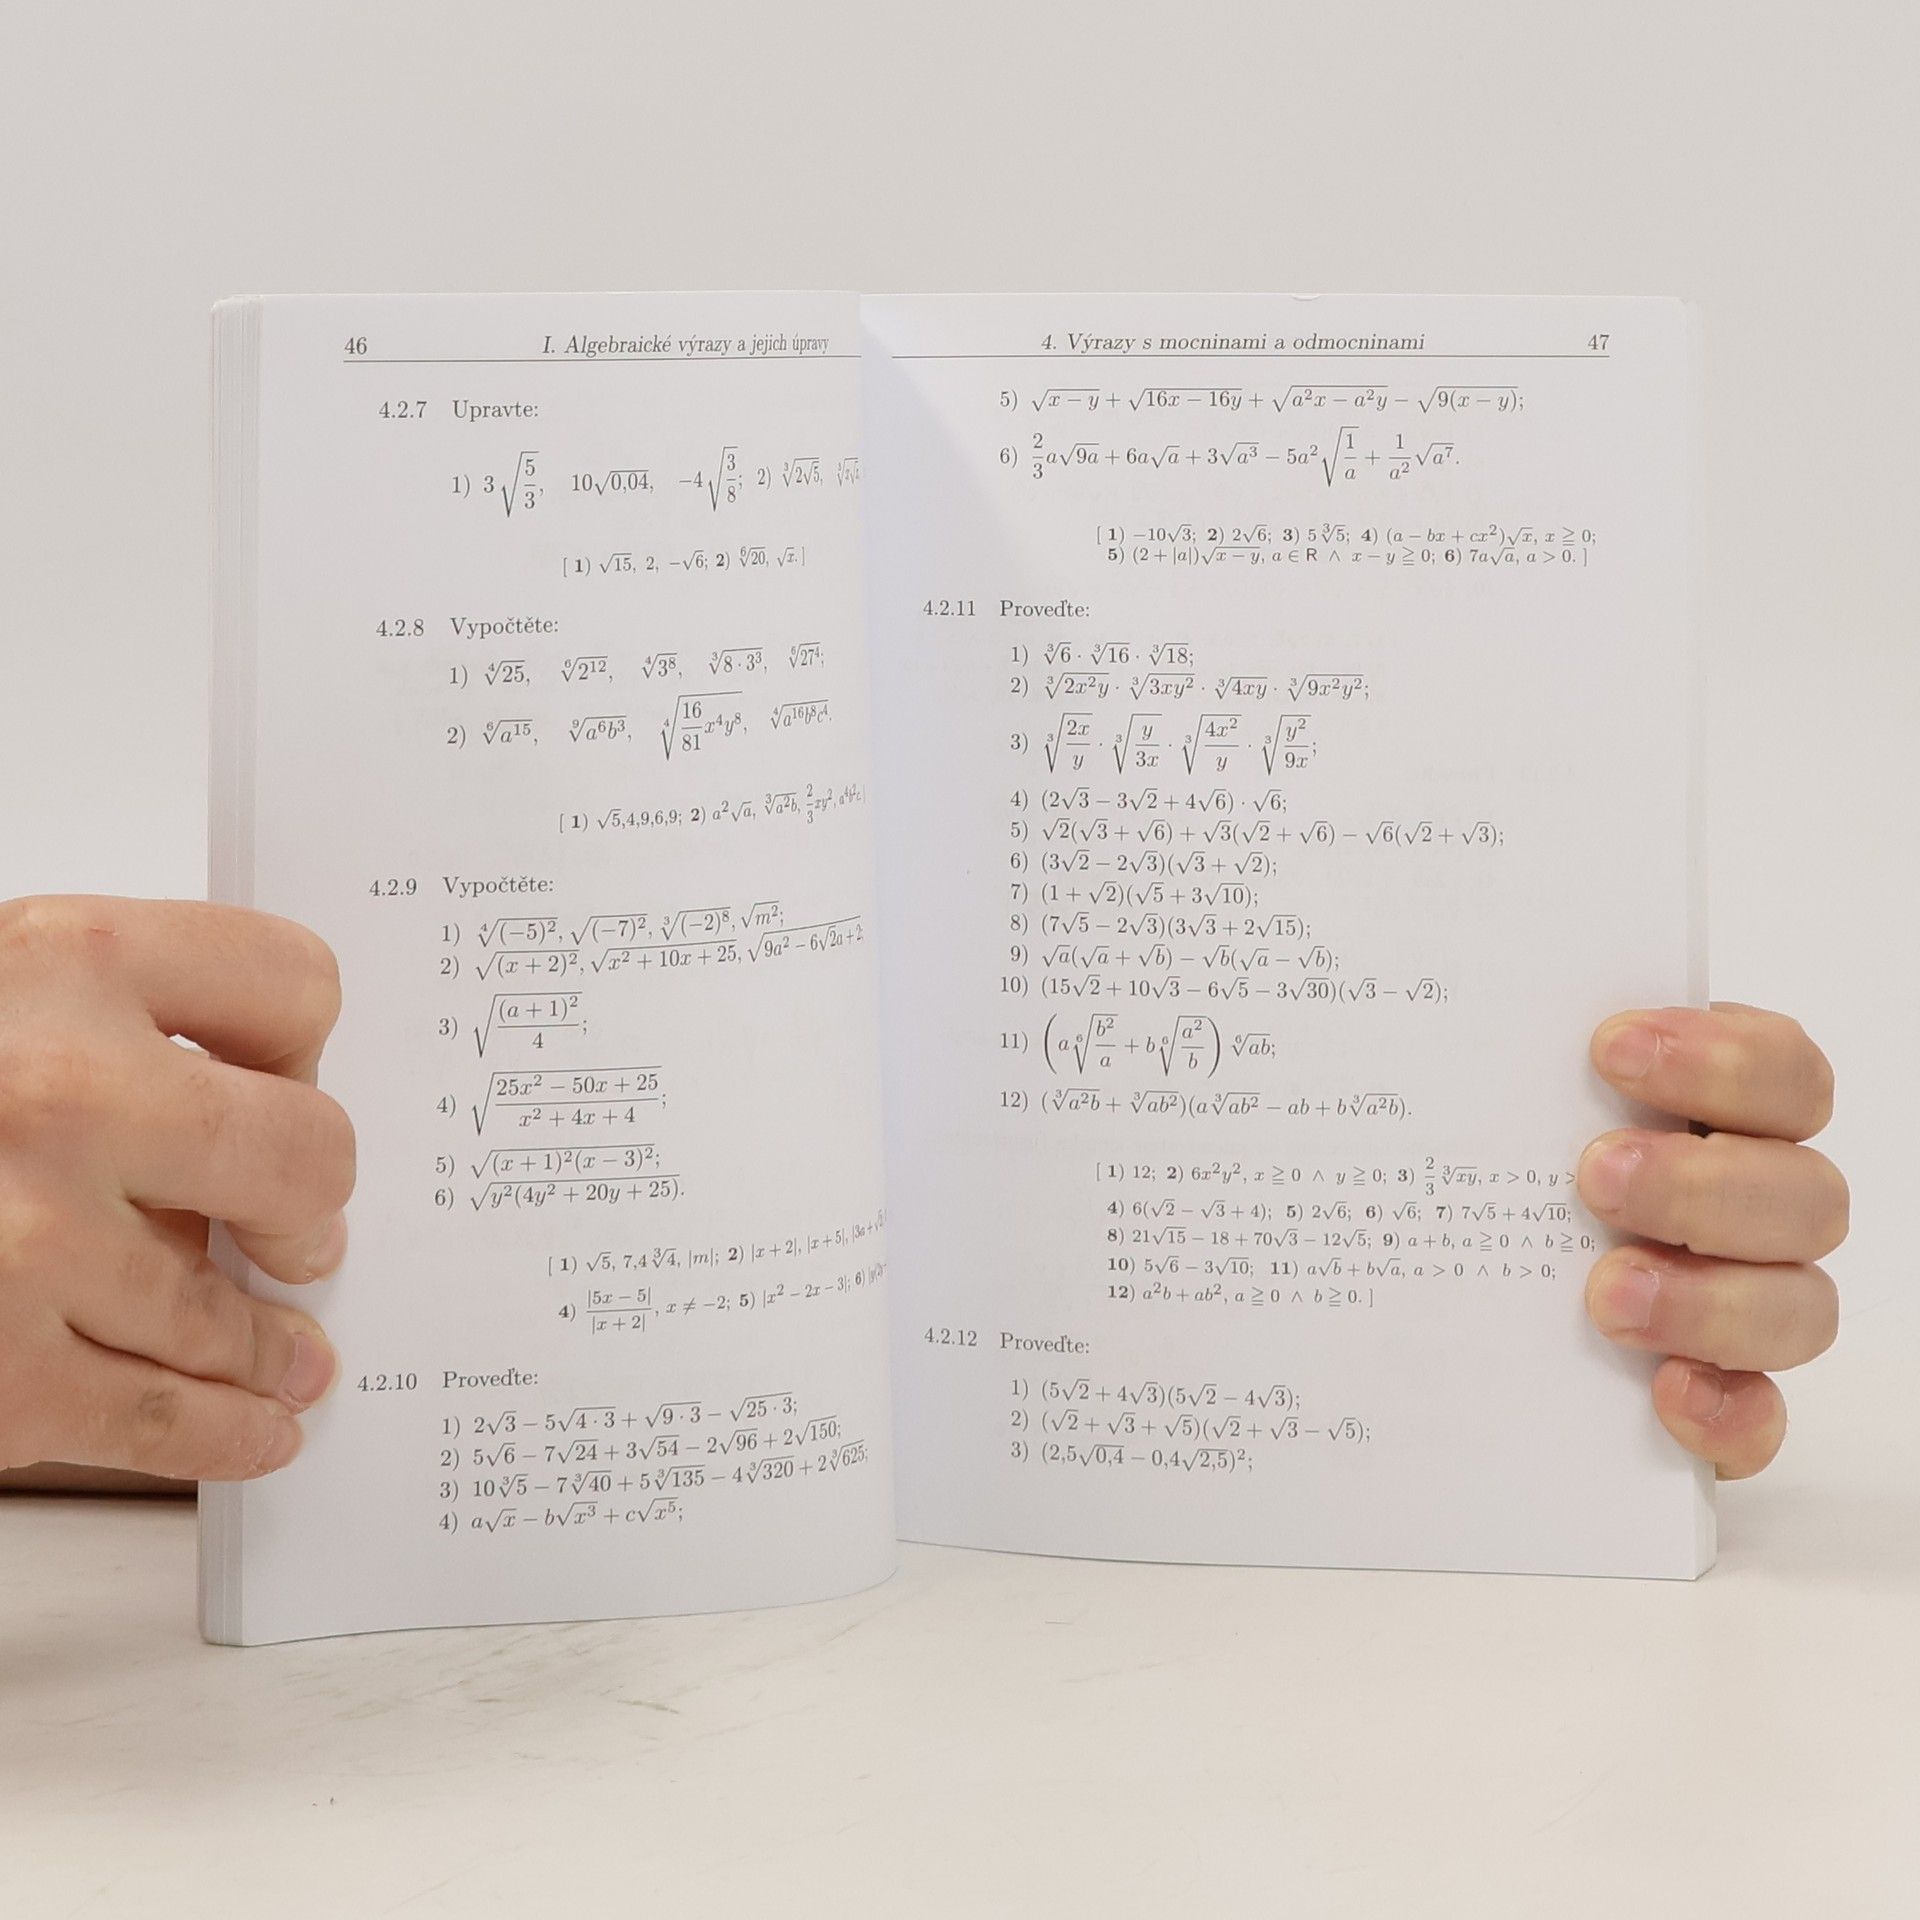 46 I. Algebraické výrazy a jejich úpravy
4.2.7 Upravte:
1) 3√(5/3), 10√0,04, −4√(3/8); 2) ∛(2√5),
[ 1) √15, 2, −√6; 2) ⁶√20, √x. ]
4.2.8 Vypočtěte:
1) ⁴√25, ⁶√(2¹²), ⁴√(3⁸), ∛(8 · 3³), ⁶√(27⁴);
2) ⁶√(a¹⁵), ⁹√(a⁶b³), ⁴√((16/81)x⁴y⁸), ⁴√(a¹⁶b⁸c⁴).
[ 1) √5,4,9,6,9; 2) a²√a, ∛(a²b), (2/3)xy², a⁴b²c ]
4.2.9 Vypočtěte:
1) ⁴√((−5)²), √((−7)²), ∛((−2)⁸), √(m²);
2) √((x + 2)²), √(x² + 10x + 25), √(9a² − 6√2a + 2;
3) √((a + 1)²/4);
4) √((25x² − 50x + 25)/(x² + 4x + 4));
5) √((x + 1)²(x − 3)²);
6) √(y²(4y² + 20y + 25)).
[ 1) √5, 7,4∛4, |m|; 2) |x + 2|, |x + 5|,
4) |5x − 5|/|x + 2|, x ≠ −2; 5) |x² − 2x − 3|; 6)
4.2.10 Proveďte:
1) 2√3 − 5√(4 · 3) + √(9 · 3) − √(25 · 3);
2) 5√6 − 7√24 + 3√54 − 2√96 + 2√150;
3) 10∛5 − 7∛40 + 5∛135 − 4∛320 + 2∛625;
4) a√x − b√(x³) + c√(x⁵);
4. Výrazy s mocninami a odmocninami 47
5) √(x − y) + √(16x − 16y) + √(a²x − a²y) − √(9(x − y));
6) (2/3)a√(9a) + 6a√a + 3√(a³) − 5a²√(1/a) + (1/a²)√(a⁷).
[ 1) −10√3; 2) 2√6; 3) 5∛5; 4) (a − bx + cx²)√x, x ≧ 0;
5) (2 + |a|)√(x − y), a ∈ R ∧ x − y ≧ 0; 6) 7a√a, a > 0. ]
4.2.11 Proveďte:
1) ∛6 · ∛16 · ∛18;
2) ∛(2x²y) · ∛(3xy²) · ∛(4xy) · ∛(9x²y²);
3) ∛(2x/y) · ∛(y/3x) · ∛(4x²/y) · ∛(y²/9x);
4) (2√3 − 3√2 + 4√6) · √6;
5) √2(√3 + √6) + √3(√2 + √6) − √6(√2 + √3);
6) (3√2 − 2√3)(√3 + √2);
7) (1 + √2)(√5 + 3√10);
8) (7√5 − 2√3)(3√3 + 2√15);
9) √a(√a + √b) − √b(√a − √b);
10) (15√2 + 10√3 − 6√5 − 3√30)(√3 − √2);
11) (a⁶√(b²/a) + b⁶√(a²/b)) ⁶√(ab);
12) (∛(a²b) + ∛(ab²))(a∛(ab²) − ab + b∛(a²b)).
[ 1) 12; 2) 6x²y², x ≧ 0 ∧ y ≧ 0; 3) (2/3)∛(xy), x > 0, y >
4) 6(√2 − √3 + 4); 5) 2√6; 6) √6; 7) 7√5 + 4√10;
8) 21√15 − 18 + 70√3 − 12√5; 9) a + b, a ≧ 0 ∧ b ≧ 0;
10) 5√6 − 3√10; 11) a√b + b√a, a > 0 ∧ b > 0;
12) a²b + ab², a ≧ 0 ∧ b ≧ 0. ]
4.2.12 Proveďte:
1) (5√2 + 4√3)(5√2 − 4√3);
2) (√2 + √3 + √5)(√2 + √3 − √5);
3) (2,5√0,4 − 0,4√2,5)²;